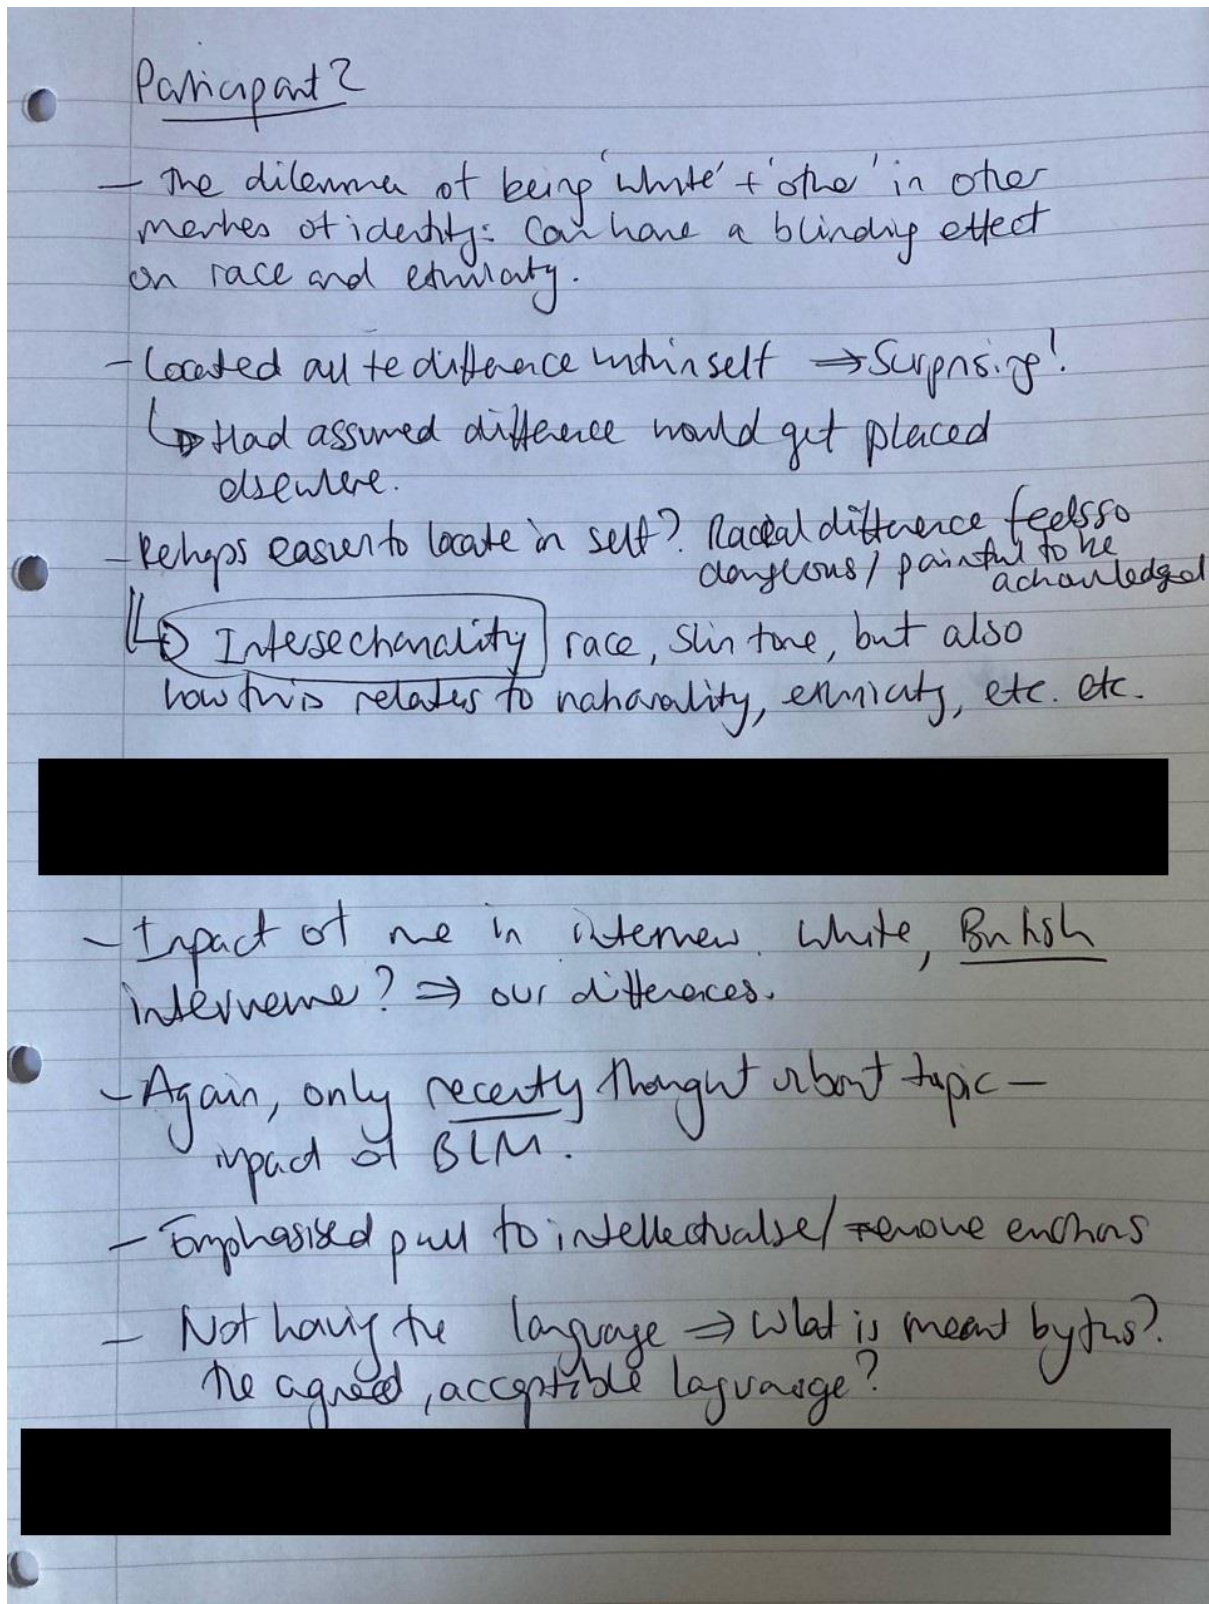 Participant 2
- The dilemma of being 'white' + 'other' in other
markers of identity: Can have a blinding effect
on race and ethnicity.
- Located all the difference within self ⇒ Surprising!
↳ Had assumed difference would get placed
elsewhere.
- Perhaps easier to locate in self? Racial difference feels so
dangerous / painful to be
acknowledged
↳ Intersectionality race, skin tone, but also
how this relates to nationality, ethnicity, etc. etc.
- Impact of me in interview. White, British
interviewer? ⇒ our differences.
- Again, only recently thought about topic -
impact of BLM.
- Emphasised pull to intellectualise / remove emotions
- Not having the language ⇒ What is meant by this?
The agreed, acceptible language?